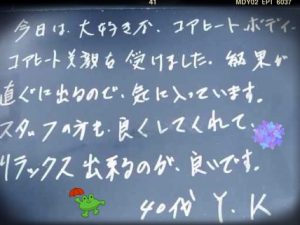 41
MDY02 EPT 6037
今日は、大好きな、コアヒートボディー
コアヒート美顔を受けました。結果が
直ぐに出るので、気に入っています。
スタッフの方も、良くしてくれて、
リラックス出来るのが、良いです。
40代 Y.K